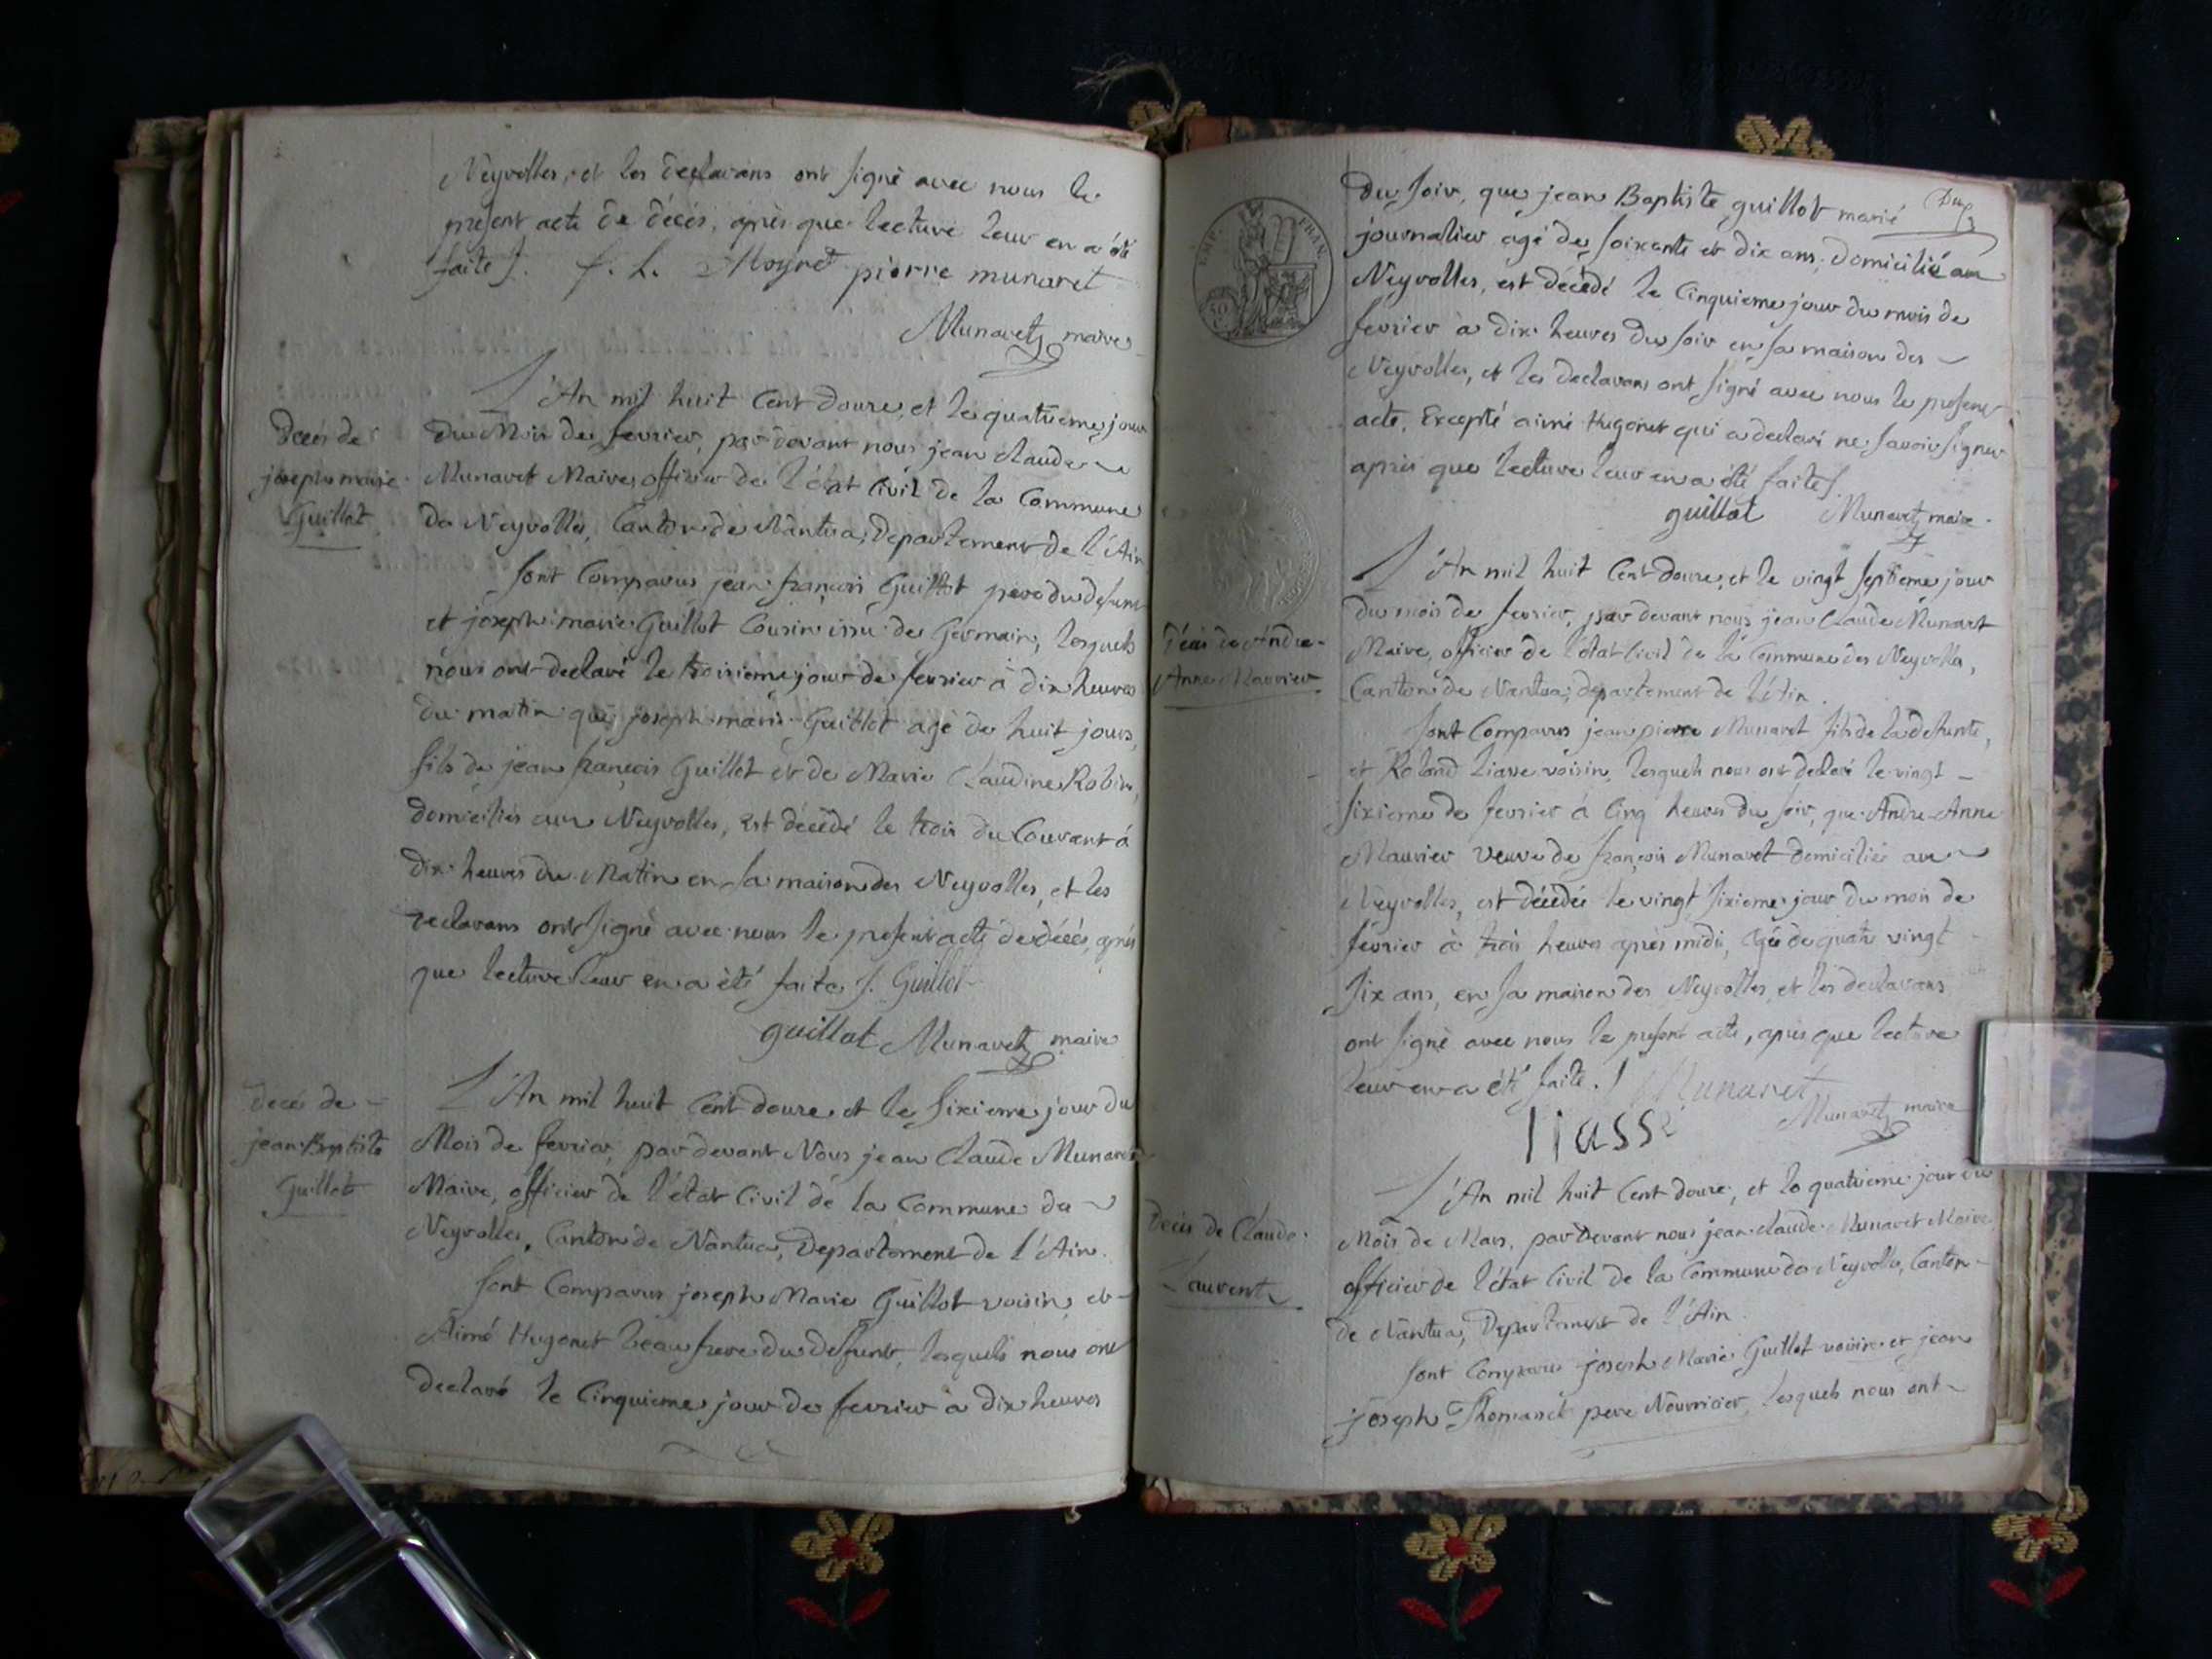 Neyrolles, et les declarans ont signé avec nous le
present acte de décès, après que lecture leur en a été
faite f. f. h. Moyret pierre munaret
Munaret maire
L'An mil huit Cent douze, et le quatrieme jour
Décès de
joseph marie
Guillot
du Mois de fevrier, par devant nous jean claude
Munaret Maire, officier de l'état Civil de la Commune
des Neyrolles, Canton de Nantua, Departement de l'Ain
sont Comparus jean françois Guillot pere du defunt
et joseph marie Guillot Cousin issu de Germain, lesquels
nous ont declaré le troisieme jour de fevrier à dix heures
du matin que joseph marie Guillot agé de huit jours,
fils de jean françois Guillot et de Marie Claudine Robin,
domiciliés aux Neyrolles, est décédé le trois du Courant à
dix heures du Matin en sa maison des Neyrolles, et les
declarans ont signé avec nous le present acte de décès, après
que lecture leur en a été faite f. Guillot
guillot Munaret maire
Décès de
jean Baptiste
Guillot
L'An mil huit Cent douze et le sixieme jour du
Mois de fevrier, par devant Nous jean Claude Munaret
Maire, officier de l'état Civil de la Commune des
Neyrolles, Canton de Nantua, Departement de l'Ain.
sont Comparus joseph Marie Guillot voisin, et
Aimé Hugonet beau frere du defunt, lesquels nous ont
declaré le Cinquieme jour de fevrier à dix heures
EMP. FRAN.
50 C.
du soir, que jean Baptiste guillot marié
journalier agé de soixante et dix ans, domicilié au
Neyrolles, est décédé le Cinquieme jour du mois de
fevrier à dix heures du soir en sa maison des
Neyrolles, et les declarans ont signé avec nous le present
acte, Excepté aimé Hugonet qui a declaré ne savoir signer
après que lecture leur en a été faite f.
guillot Munaret maire
L'An mil huit Cent douze, et le vingt septieme jour
du mois de fevrier, par devant nous jean Claude Munaret
Décès de Andre
Anne Maurier
Maire, officier de l'état Civil de la Commune des Neyrolles,
Canton de Nantua, departement de l'Ain.
sont Comparus jean pierre Munaret fils de la defunte,
et Roland liasse voisin, lesquels nous ont declaré le vingt
sixieme de fevrier à Cinq heures du soir, que Andre Anne
Maurier veuve de françois Munaret domiciliée aux
Neyrolles, est décédée le vingt sixieme jour du mois de
fevrier à trois heures après midi, agée de quatre vingt
six ans, en sa maison des Neyrolles, et les declarans
ont signé avec nous le present acte, après que lecture
leur en a été faite. f Munaret
liasse Munaret maire
L'An mil huit Cent douze, et le quatrieme jour du
Décès de Claude
Laurent
Mois de Mars, par devant nous jean claude Munaret Maire
officier de l'état Civil de la Commune des Neyrolles, Canton
de Nantua, Departement de l'Ain.
sont Comparus joseph Marie Guillot voisin et jean
joseph Thomasset pere Nourricier, lesquels nous ont